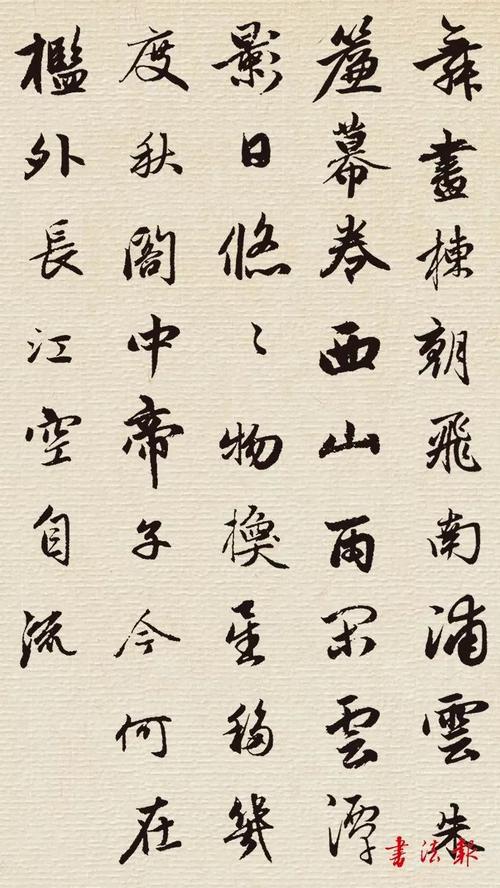 舞畫棟朝飛南浦雲朱
簾幕卷西山雨閑雲潭
影日悠〻物換星移幾
度秋閣中帝子今何在
檻外長江空自流
書法報